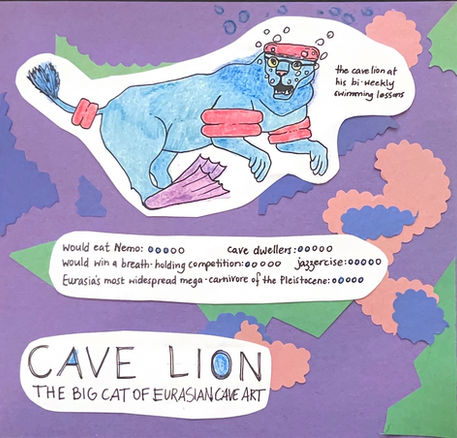 the cave lion at
his bi-weekly
swimming lessons
would eat Nemo: ooooo cave dwellers: ooooo
would win a breath-holding competition: ooooo jazzercise: ooooo
Eurasia's most widespread mega-carnivore of the Pleistocene: ooooo
CAVE LION
THE BIG CAT OF EURASIAN CAVE ART